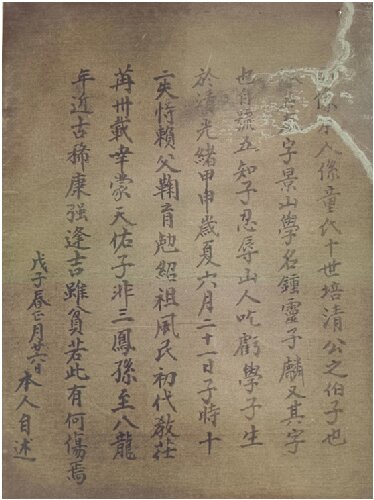 人係童代十世培清公之伯子也
字景山學名鍾靈子麟又其字
也自號五知子忍辱山人吃虧學子生
於清光緒甲申歲夏六月二十一日子時十
二失恃賴父鞠育勉紹祖風民初代教荏
苒卅載幸蒙天佑子非三鳳孫至八龍
年近古稀康强逢吉雖貧若此有何傷焉
戊子春正月廿六日
本人自述